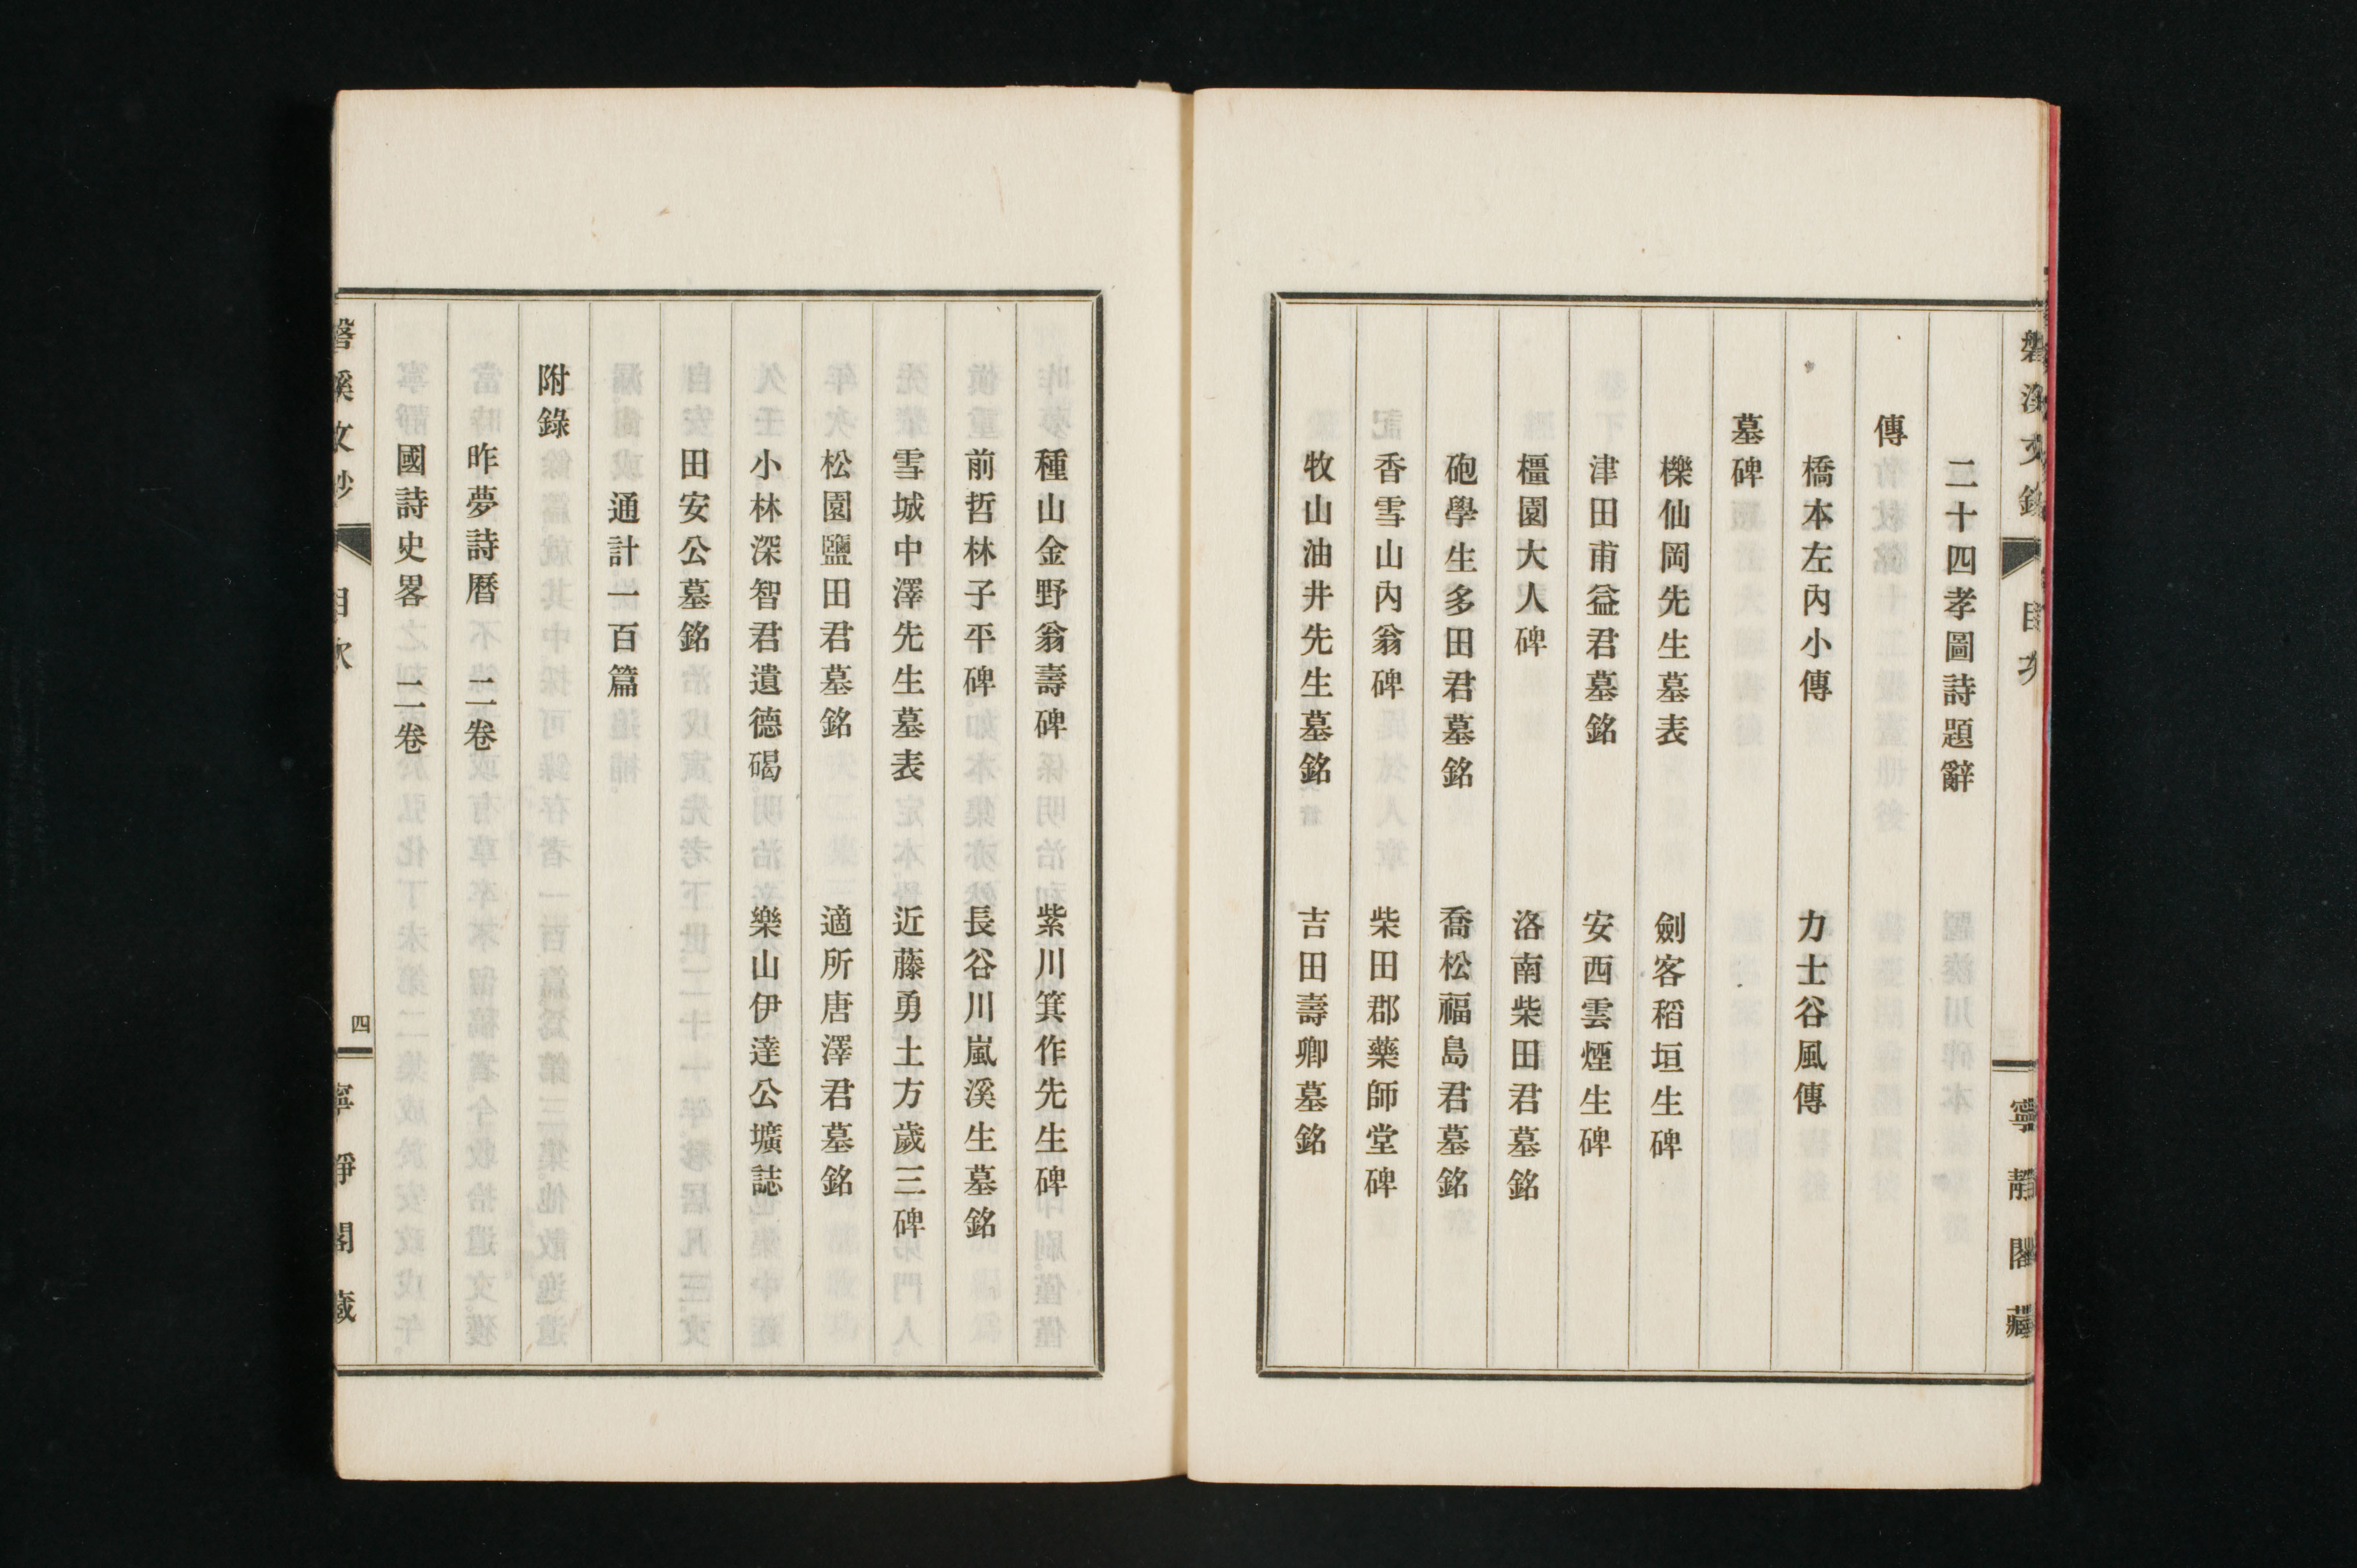 二十四孝圖詩題辭
傳
橋本左內小傳　力士谷風傳
墓碑
櫟仙岡先生墓表　劍客稻垣生碑
津田甫益君墓銘　安西雲煙生碑
橿園大人碑　洛南柴田君墓銘
砲學生多田君墓銘　喬松福島君墓銘
香雪山內翁碑　柴田郡藥師堂碑
牧山油井先生墓銘　吉田壽卿墓銘
目次
寧靜閣藏
種山金野翁壽碑　紫川箕作先生碑
前哲林子平碑　長谷川嵐溪生墓銘
雪城中澤先生墓表　近藤勇土方歲三碑
松園鹽田君墓銘　適所唐澤君墓銘
小林深智君遺德碣　樂山伊達公壙誌
田安公墓銘
通計一百篇
附錄
昨夢詩曆　二卷
國詩史畧　二卷
目次　四
寧靜閣藏